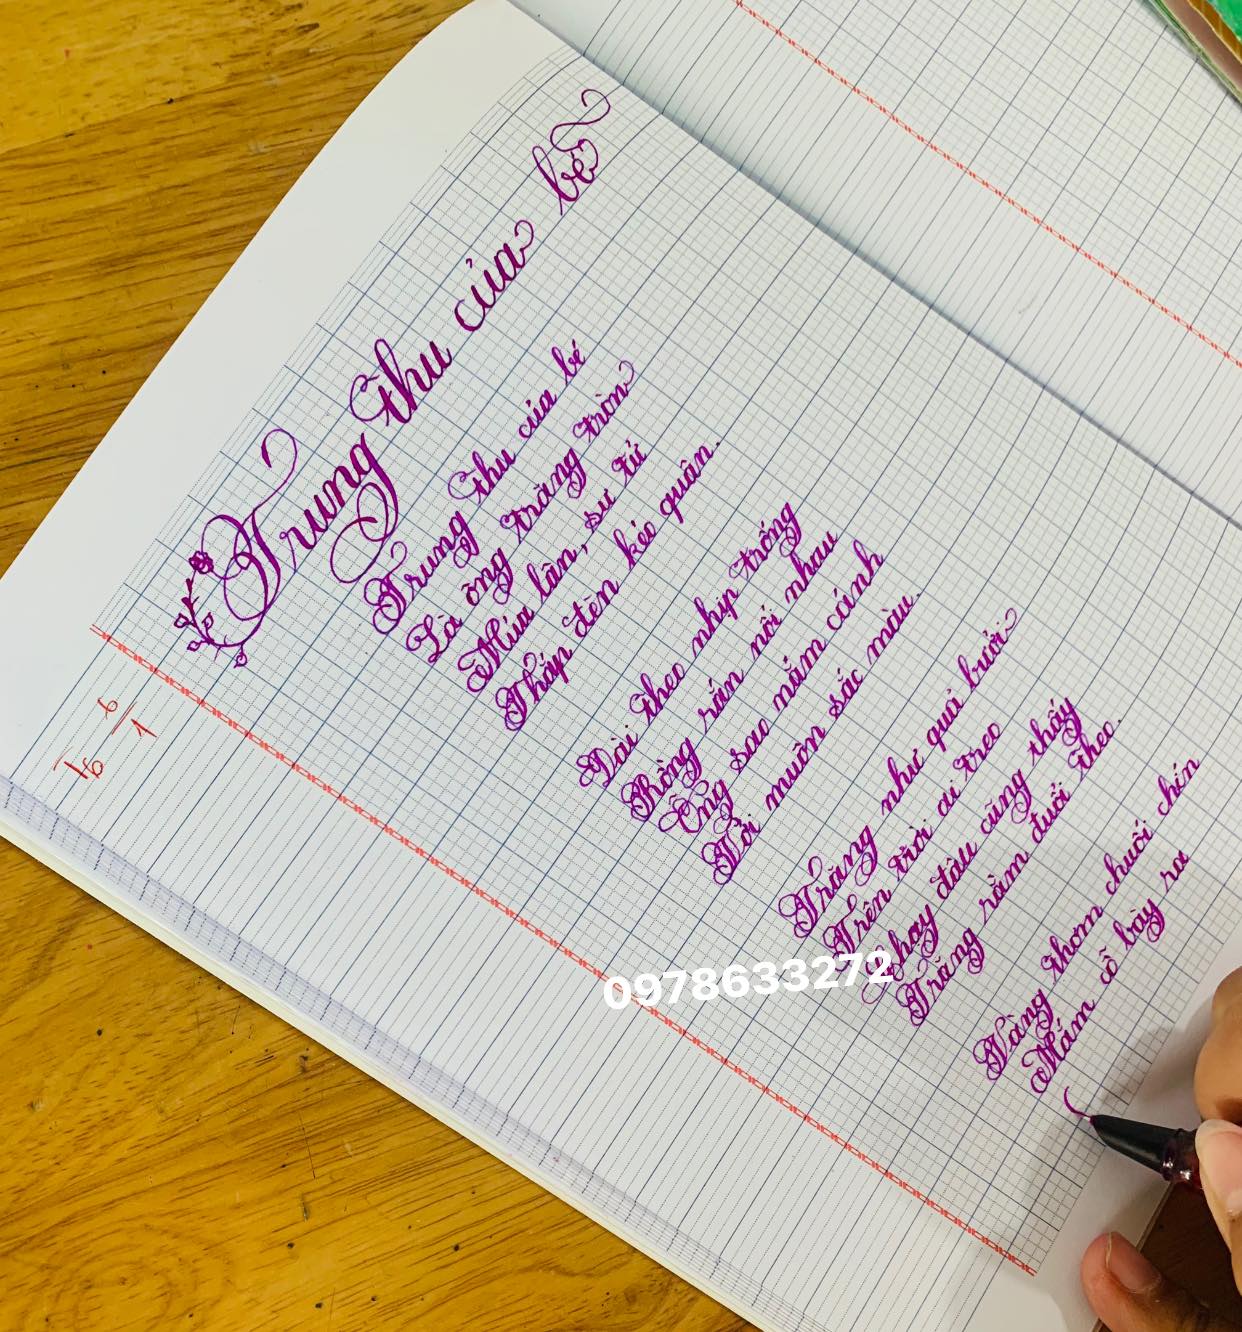 Trung thu của bé
Trung thu của bé
Là ông trăng tròn
Múa lân, sư tử
Thắp đèn kéo quân.
Dài theo nhịp trống
Rồng rắn nối nhau
Ông sao năm cánh
Tới muôn sắc màu.
Trăng như quả bưởi
Trên trời ai treo
Chạy đâu cũng thấy
Trăng rằm đuổi theo.
Vàng thơm chuối chín
Mâm cỗ bày ra
16
6
1
0978633272